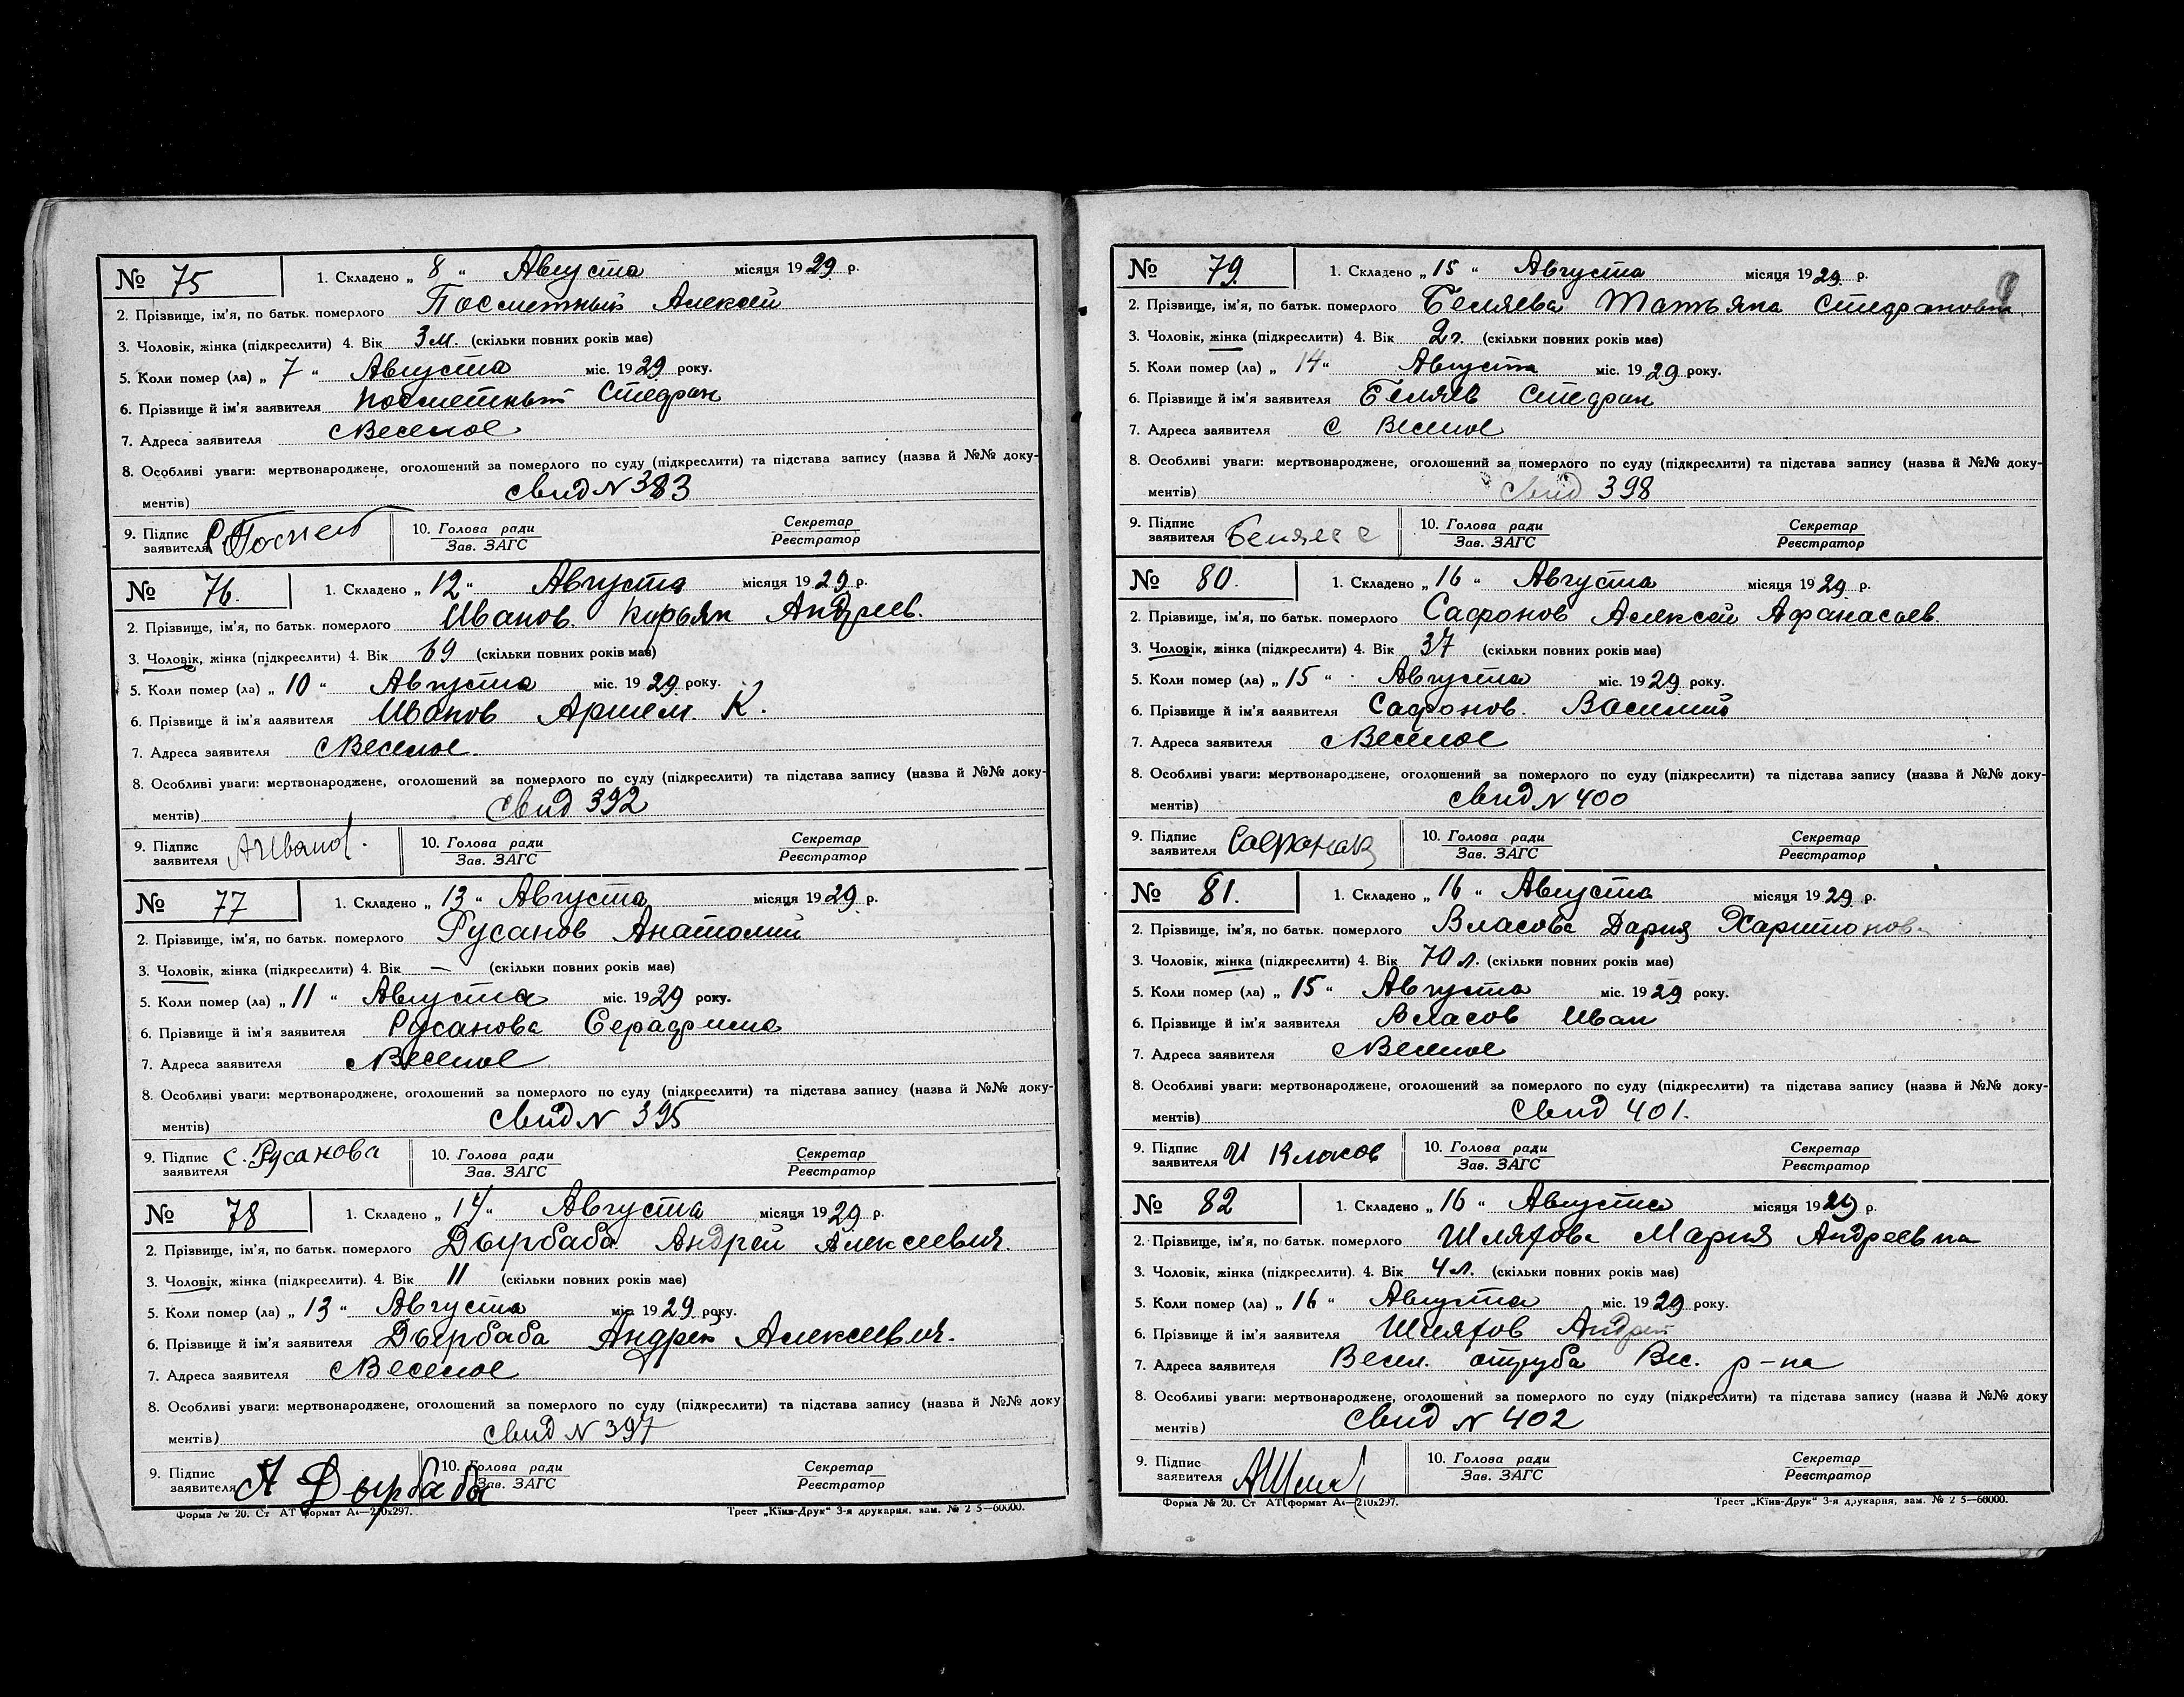 № 75 1. Складено „ 8 “ Августа місяця 1929 р.
2. Прізвище, ім'я, по батьк. померлого Посметный Алексей
3. Чоловік, жінка (підкреслити) 4. Вік 3 м. (скільки повних років має)
5. Коли помер (ла) „ 7 “ Августа міс. 1929 року.
6. Прізвище й ім'я заявителя Посметный Стефан
7. Адреса заявителя с Веселое
8. Особливі уваги: мертвонароджене, оголошений за померлого по суду (підкреслити) та підстава запису (назва й №№ доку-
ментів) свид N 383
9. Підпис заявителя 10. Голова ради Зав. ЗАГС Секретар Реєстратор
№ 76. 1. Складено „ 12 “ Августа місяця 1929 р.
2. Прізвище, ім'я, по батьк. померлого Иванов Кирьян Андреев.
3. Чоловік, жінка (підкреслити) 4. Вік 69 (скільки повних років має)
5. Коли помер (ла) „ 10 “ Августа міс. 1929 року.
6. Прізвище й ім'я заявителя Иванов Артем. К.
7. Адреса заявителя с Веселое.
8. Особливі уваги: мертвонароджене, оголошений за померлого по суду (підкреслити) та підстава запису (назва й №№ доку-
ментів) свид 392
9. Підпис заявителя А Иванов. 10. Голова ради Зав. ЗАГС Секретар Реєстратор
№ 77 1. Складено „ 13 “ Августа місяця 1929 р.
2. Прізвище, ім'я, по батьк. померлого Русанов Анатолий
3. Чоловік, жінка (підкреслити) 4. Вік — (скільки повних років має)
5. Коли помер (ла) „ 11 “ Августа міс. 1929 року.
6. Прізвище й ім'я заявителя Русанова Серафима
7. Адреса заявителя с Веселое
8. Особливі уваги: мертвонароджене, оголошений за померлого по суду (підкреслити) та підстава запису (назва й №№ доку-
ментів) свид N 395
9. Підпис заявителя С. Русанова 10. Голова ради Зав. ЗАГС Секретар Реєстратор
№ 78 1. Складено „ 14 “ Августа місяця 1929 р.
2. Прізвище, ім'я, по батьк. померлого Дырбаба Андрей Алексеевич.
3. Чоловік, жінка (підкреслити). 4. Вік 11 (скільки повних років має)
5. Коли помер (ла) „ 13 “ Августа міс. 1929 року.
6. Прізвище й ім'я заявителя Дырбаба Андрей Алексеевич.
7. Адреса заявителя с Веселое
8. Особливі уваги: мертвонароджене, оголошений за померлого по суду (підкреслити) та підстава запису (назва й №№ доку
ментів) свид N 397
9. Підпис заявителя А Дырбаба 10. Голова ради Зав. ЗАГС Секретар Реєстратор
Форма № 20. Ст АТ формат А₄—210х297. Трест „Київ-Друк“ 3-я друкарня, зам. № 2 5—60000.
№ 79. 1. Складено „ 15 “ Августа місяця 1929 р.
2. Прізвище, ім'я, по батьк. померлого Беляева Татьяна Стефановна.
3. Чоловік, жінка (підкреслити) 4. Вік 2 г. (скільки повних років має)
5. Коли помер (ла) „ 14 “ Августа міс. 1929 року.
6. Прізвище й ім'я заявителя Беляев Стефан
7. Адреса заявителя с Веселое
8. Особливі уваги: мертвонароджене, оголошений за померлого по суду (підкреслити) та підстава запису (назва й №№ доку-
ментів) свид 398
9. Підпис заявителя 10. Голова ради Зав. ЗАГС Секретар Реєстратор
№ 80. 1. Складено „ 16 “ Августа місяця 1929 р.
2. Прізвище, ім'я, по батьк. померлого Сафонов Алексей Афанасьев.
3. Чоловік, жінка (підкреслити) 4. Вік 37 (скільки повних років має)
5. Коли помер (ла) „ 15 “ Августа міс. 1929 року.
6. Прізвище й ім'я заявителя Сафонов. Василий
7. Адреса заявителя с Веселое
8. Особливі уваги: мертвонароджене, оголошений за померлого по суду (підкреслити) та підстава запису (назва й №№ доку-
ментів) свид N 400
9. Підпис заявителя 10. Голова ради Зав. ЗАГС Секретар Реєстратор
№ 81. 1. Складено „ 16 “ Августа місяця 1929 р.
2. Прізвище, ім'я, по батьк. померлого Власова Дария Харитонов.
3. Чоловік, жінка (підкреслити) 4. Вік 70 л. (скільки повних років має)
5. Коли помер (ла) „ 15 “ Августа міс. 1929 року.
6. Прізвище й ім'я заявителя Власов Иван
7. Адреса заявителя с Веселое
8. Особливі уваги: мертвонароджене, оголошений за померлого по суду (підкреслити) та підстава запису (назва й №№ доку-
ментів) свид 401.
9. Підпис заявителя И Власов 10. Голова ради Зав. ЗАГС Секретар Реєстратор
№ 82 1. Складено „ 16 “ Августа місяця 1929 р.
2. Прізвище, ім'я, по батьк. померлого Шляхова Мария Андреевна
3. Чоловік, жінка (підкреслити). 4. Вік 4 л. (скільки повних років має)
5. Коли помер (ла) „ 16 “ Августа міс. 1929 року.
6. Прізвище й ім'я заявителя Шляхов Андрей
7. Адреса заявителя Весел. отруба Вес. р-на
8. Особливі уваги: мертвонароджене, оголошений за померлого по суду (підкреслити) та підстава запису (назва й №№ доку
ментів) свид N 402
9. Підпис заявителя 10. Голова ради Зав. ЗАГС Секретар Реєстратор
Форма № 20. Ст АТ формат А₄—210х297. Трест „Київ-Друк“ 3-я друкарня, зам. № 2 5—60000.